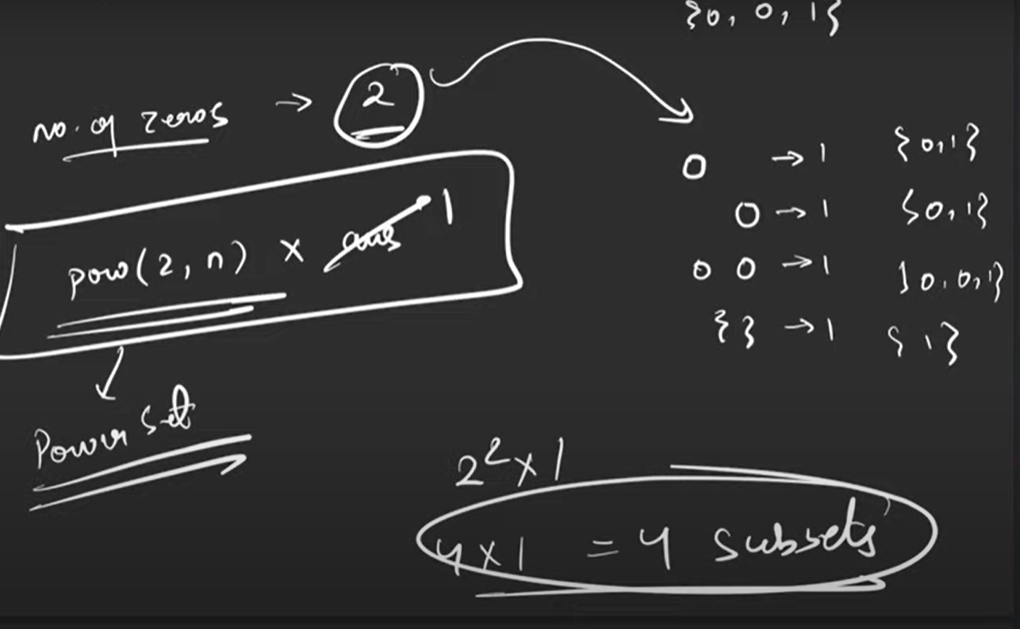 {0, 0, 1}
no. of zeros → 2
pow(2, n) × ans 1
Power set
0 → 1 {0,1}
0 → 1 {0,1}
0 0 → 1 {0,0,1}
{} → 1 {1}
2² × 1
4 × 1 = 4 subsets